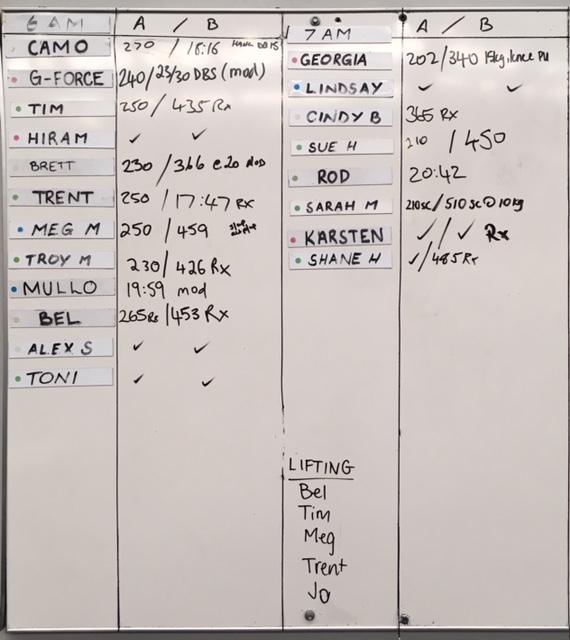 6 AM A / B
CAMO 270 / 18:16
G-FORCE 240/25/30 DBS (mod)
TIM 250 / 435 Rx
HIRAM ✓ ✓
BRETT 230 / 366 @ 20 mod
TRENT 250 / 17:47 RX
MEG M 250 / 459
TROY M 230 / 426 Rx
MULLO 19:59 mod
BEL 265Rx / 453 Rx
ALEX S ✓ ✓
TONI ✓ ✓
7 AM A / B
GEORGIA 202/340 15kg, knee PU
LINDSAY ✓ ✓
CINDY B 365 Rx
SUE H 210 / 450
ROD 20:42
SARAH M 210sc / 510 sc @ 10 kg
KARSTEN ✓ / ✓ Rx
SHANE H ✓ / 485 Rx
LIFTING
Bel
Tim
Meg
Trent
Jo